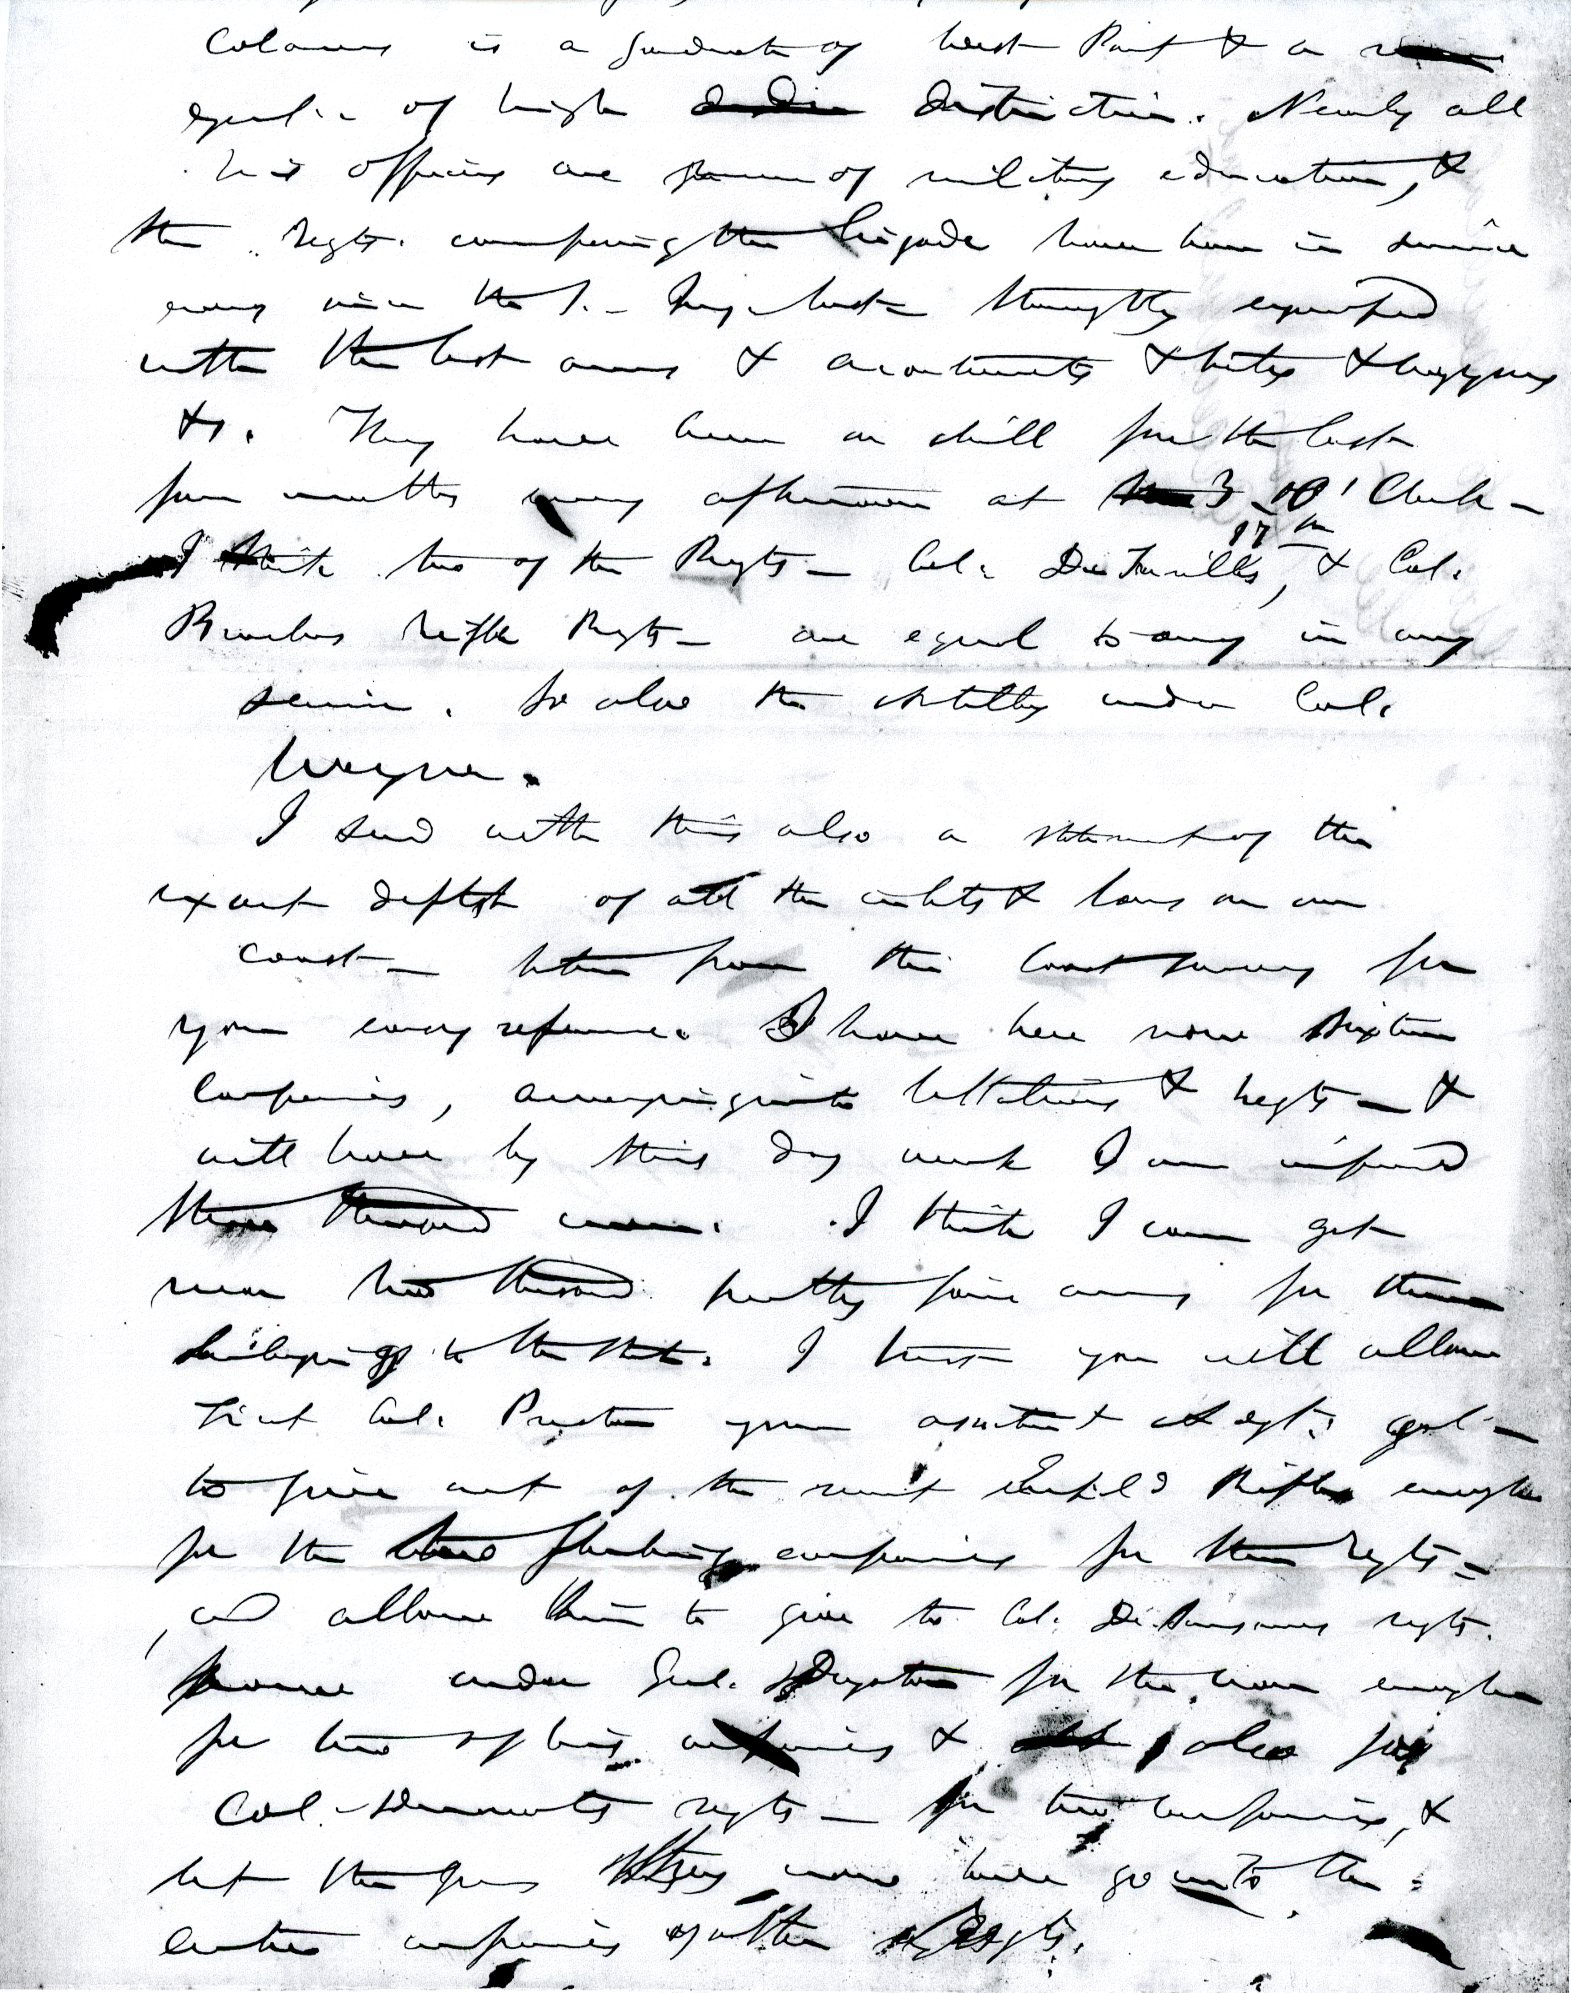 Colonels is a graduate of West Point & a
of high distinction. Nearly all
his officers are men of military education, &
the Regts. composing the brigade have been in service
ever since the 1. - thoroughly equipped
with the best arms & accoutrements & tents &
&c. They have been on drill for the last
four months every afternoon at 3 O'Clock -
I think two of the Regts - Col. De Trevilles, 17th & Col.
rifle Regt - are equal to any in any
service. So also the artillery under Col.
Wagner.
I send with this also a statement of the
exact depth of all the inlets & bars on our
coast - taken from the Coast survey for
your easy reference. I have here now sixteen
Companies, arranging into battalions & regts - &
will have by this day week I am informed
three thousand men. I think I can get
near two thousand pretty fair arms for them
belonging to the State. I trust you will allow
Lieut Col. Preston your assistant Adgt. Genl -
to give out of the recent Enfield Rifles enough
for the two flanking companies for these Regts -
and allow him to give to Col. De Saussures regt.
now under Genl. Drayton for the war enough
for two of his companies & also for
Col. regt - for two companies, &
let the guns they now have go into the
entire companies of other Regts.